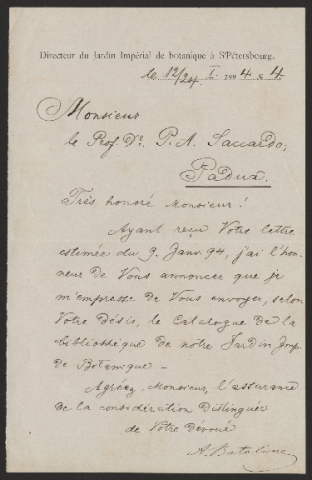 Directeur du Jardin Impérial de botanique à St Pétersbourg.
le 12/24 I. 1894 № 4.
Monsieur
le Prof. Dr. P. A. Saccardo,
Padua.
Très honoré Monsieur!
Ayant reçu Votre lettre
estimée du 9 Janv. 94, j'ai l'hon-
neur de Vous annoncer que je
m'empresse de Vous envoyer, selon
Votre désir, le Catalogue de la
bibliothèque de notre Jardin Imp.
de Botanique –
Agréez, Monsieur, l'assurance
de la considération distinguée
de Votre dévoué
A. Batalin